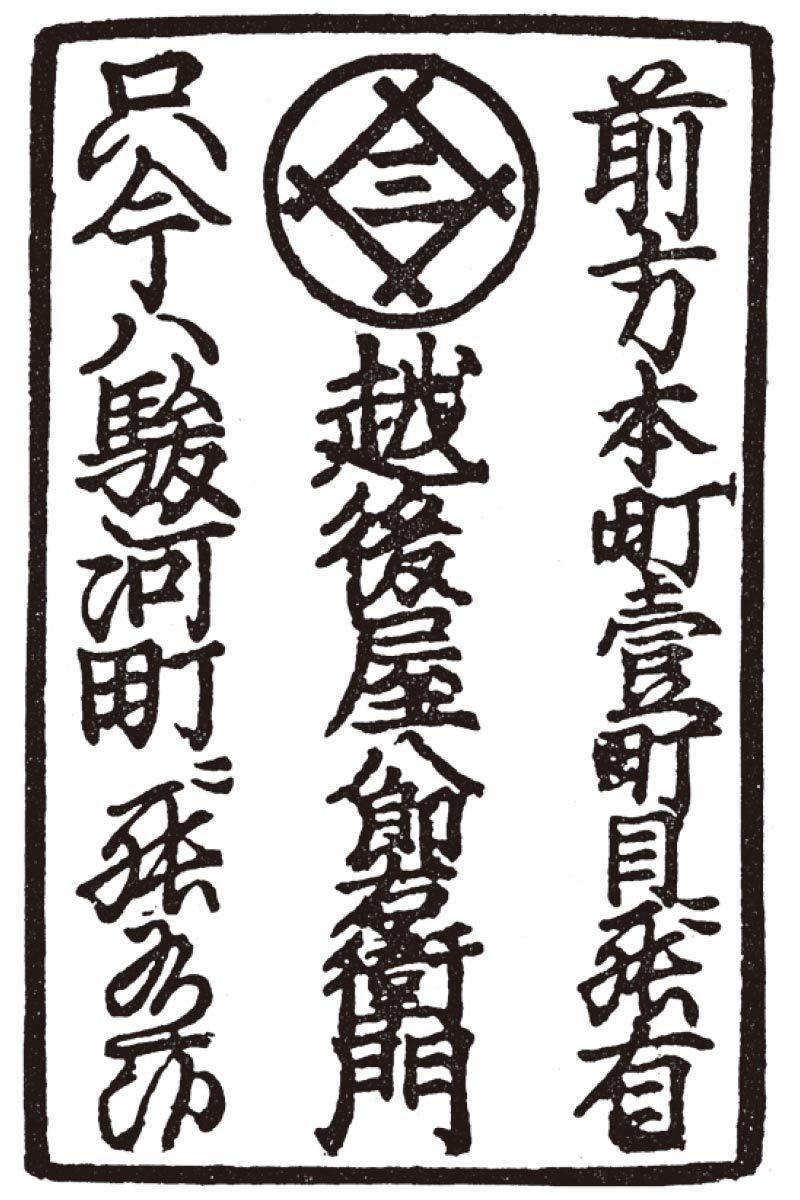 前方本町壹町目ニ罷有
三 越後屋八郎右衛門
只今ハ駿河町ニ罷